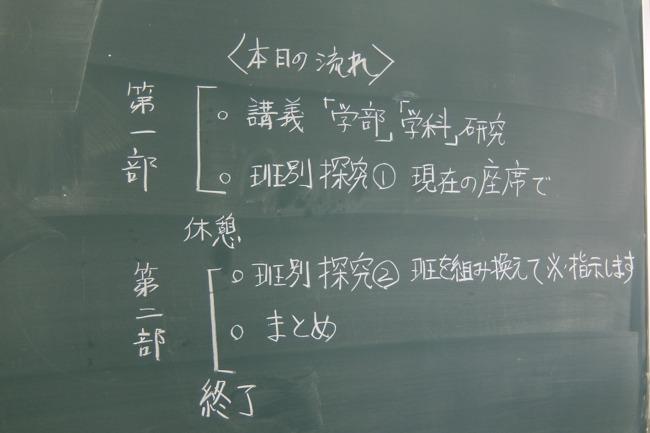 〈本日の流れ〉
第一部
○ 講義 「学部」「学科」研究
○ 班別探究① 現在の座席で
休憩
第二部
○ 班別探究② 班を組み換えて※指示します
○ まとめ
終了